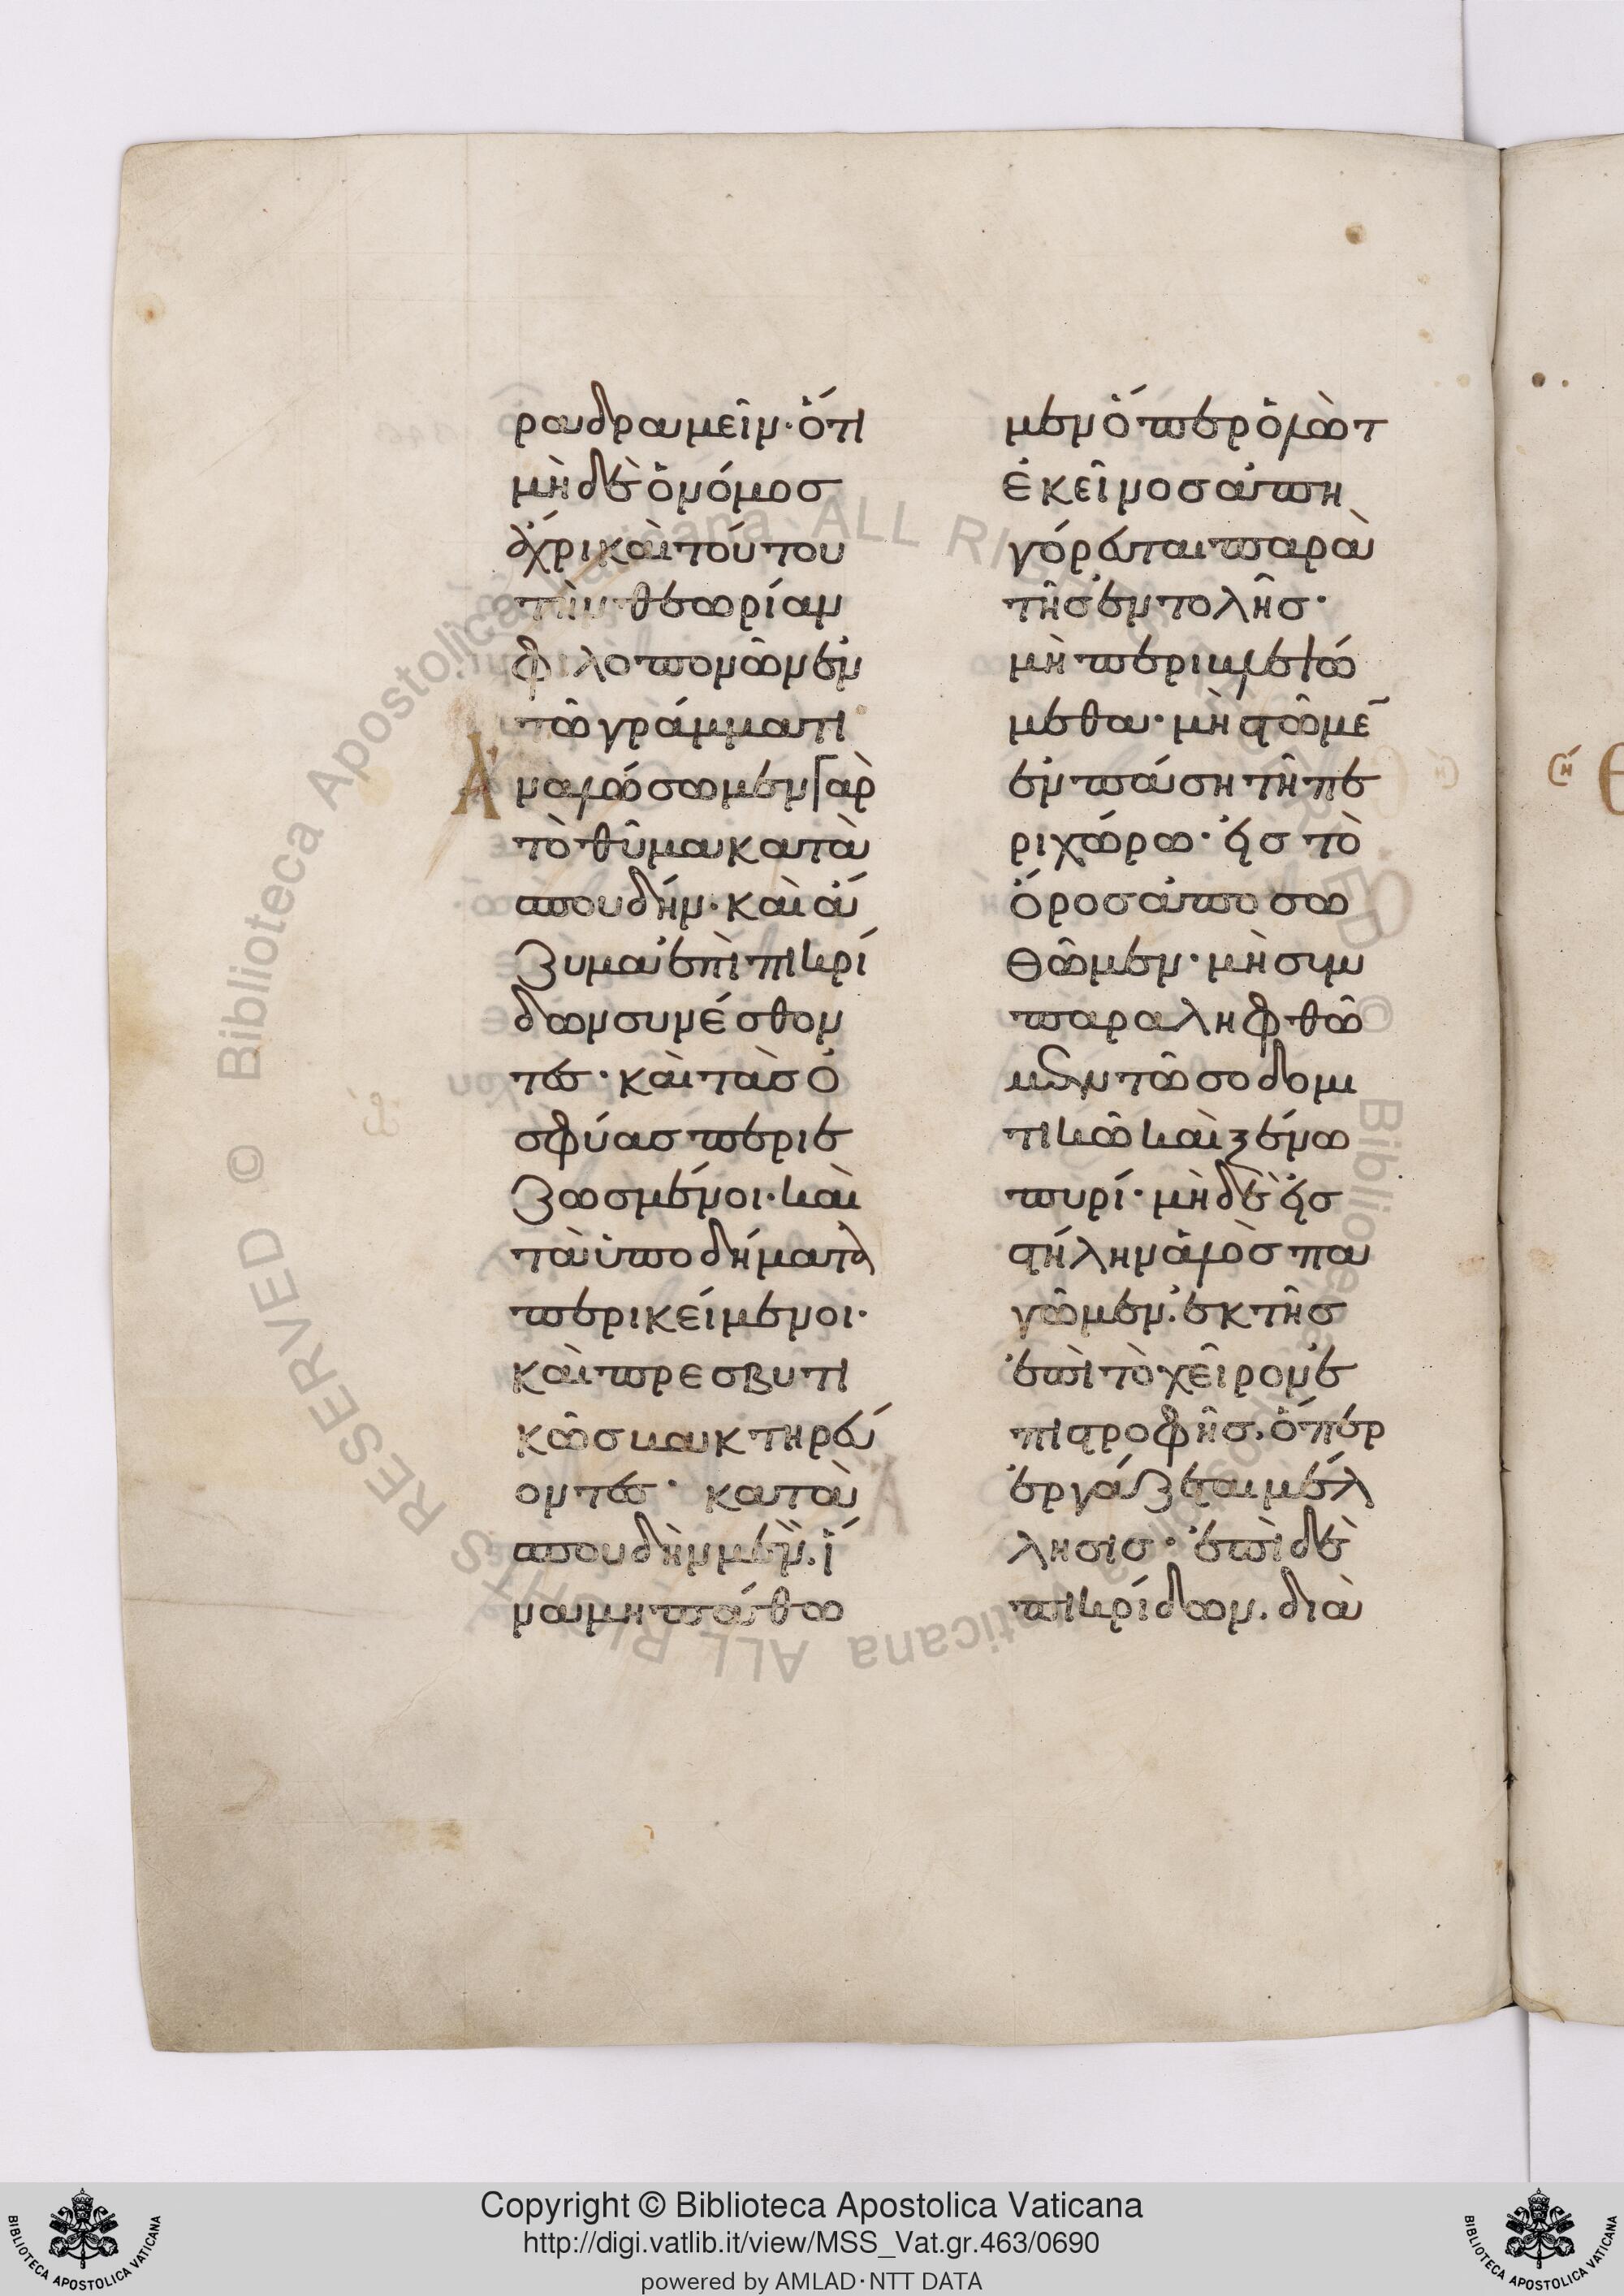 ραδραμεῖν· ὅτι
μὴ δὲ ὁ νόμος
ἄχρι καὶ τούτου
τὴν θεωρίαν
φιλοπονῶν ἐν
τῶ γράμματι
Ἀναλώσωμεν γὰρ
τὸ θῦμα κατὰ
σπουδήν· καὶ ἄ
ζυμα ἐπὶ πικρί
δων συνέσθον
τες· καὶ τὰς ὀ
σφύας περιε
ζωσμένοι· καὶ
τὰ ὑποδήματα
περικείμενοι·
καὶ πρεσβυτι
κῶς βακτηρεύ
οντες· κατὰ
σπουδὴν μὲν. ἵ
να μὴ πάθω
μεν ὅπερ ὁ λὼτ
ἐκεῖνος ἀπη
γόρευται παρὰ
τῆς ἐντολῆς·
μὴ περιβλεψώ
μεθα· μὴ στῶμε̄
ἐν πάση τῆ πε
ριχώρω· εἰς τὸ
ὄρος ἀποσω
θῶμεν· μὴ συμ
παραληφθῶ
μεν τῶ σοδομι
τικῶ καὶ ξένω
πυρί· μὴ δὲ εἰς
στήλην ἁλὸς πα
γῶμεν. ἐκ τῆς
ἐπὶ τὸ χεῖρον ἐ
πιστροφῆς. ὅπερ
ἐργάζεται μέλ
λησις· ἐπὶ δὲ
πικρίδων. διὰ
Copyright © Biblioteca Apostolica Vaticana
http://digi.vatlib.it/view/MSS_Vat.gr.463/0690
powered by AMLAD·NTT DATA